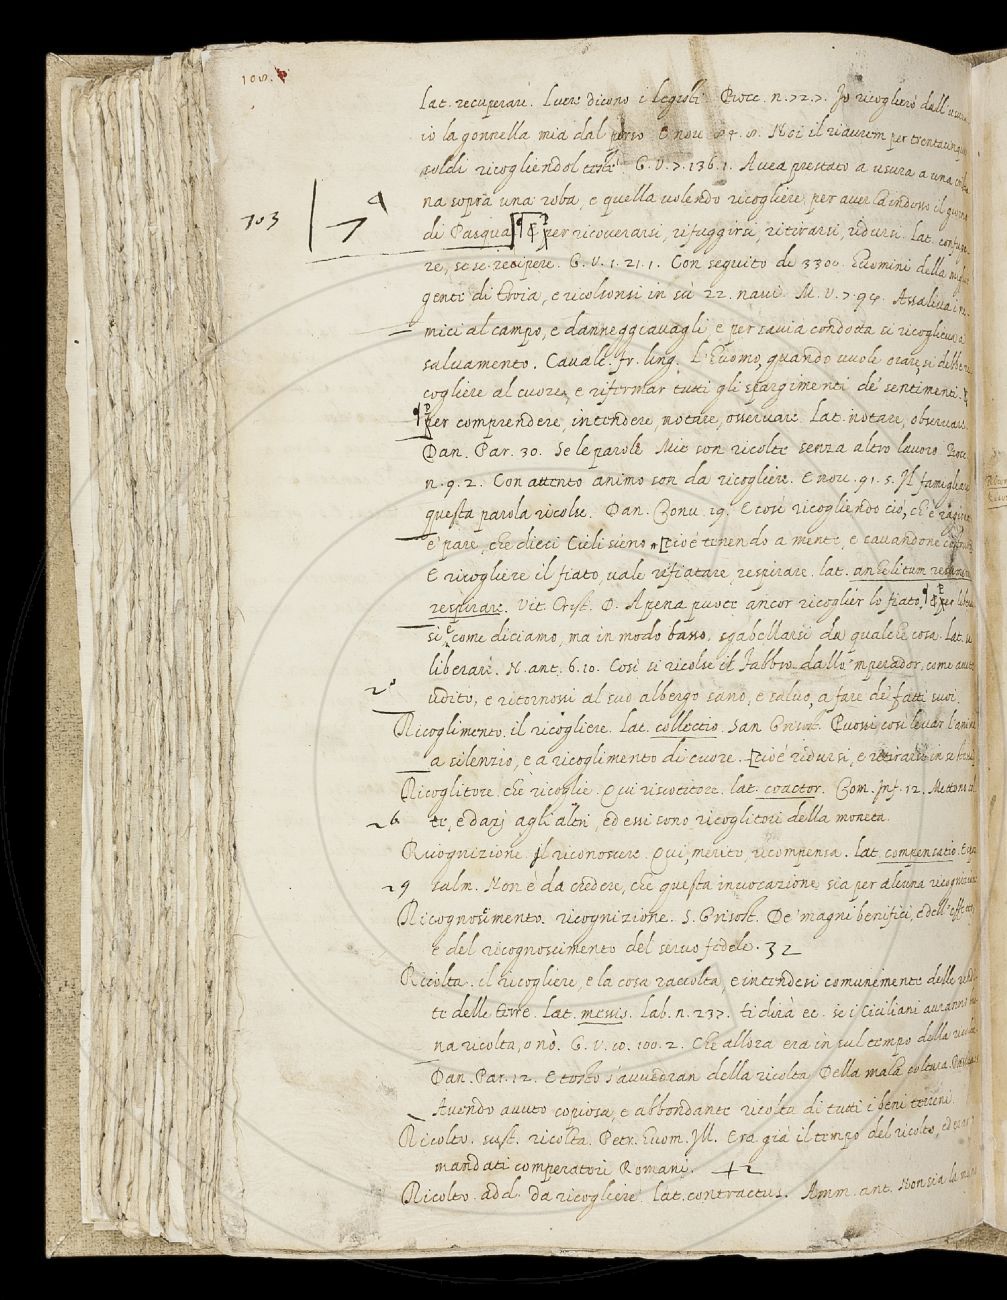 100.
lat. recuperare. Luere dicono i legisti. Bocc. n. 72. 7. Io ricoglierò dall'usura
io la gonnella mia dal perso. E nou. 84. 8. Noi il riaurem per trentacinque
soldi ricogliendol testè. G. V. 7. 136. 1. Auea prestato a usura a una
na sopra una roba, e quella uolendo ricogliere per auerla indosso il giorno
703
di Pasqua per ricouerarsi, rifuggirsi, ritirarsi, ridursi. Lat. confuge
re, se se recipere. G. V. 1. 21. 1. Con seguito di 3300. huomini della
gente di Troia, e ricolsonsi in su 22. naui. M. V. 7. 94. Assaliua i ne
mici al campo, e danneggiauagli e per sauia condotta si ricoglieua a
saluamento. Caualc. fr. ling. L'huomo, quando uuole orare, si debbe ri
cogliere al cuore, e rifermar tutti gli spargimenti de' sentimenti.
per comprendere, intendere, notare, osseruare. Lat. notare, obseruare.
Dan. Par. 30. Se le parole Mie son ricolte senza altro lauoro. Bocc.
n. 9. 2. Con attento animo son da ricogliere. E nou. 91. 5. Il famigliare
questa parola ricolse. Dan. Conu. 19. E così ricogliendo ciò, ch'è ragionato
è pare, che dieci Cieli sieno cioè tenendo a mente, e cauandone
E ricogliere il fiato, uale rifiatare, respirare. lat. anhelitum
respirare. Vit. Crist. D. Apena puote ancor ricoglièr lo fiato, per libera
si come diciamo, ma in modo basso, sgabellarsi da qualche cosa. Lat. se
liberare. N. ant. 6. 10. Così si ricolse il Fabbro dallo 'mperador, come auete
udito, e ritornossi al suo albergo sano, e saluo, a fare de' fatti suoi.
Ricoglimento. il ricogliere. Lat. collectio. San Grisost. Puossi così leuar l'anima
a silenzio, e a ricoglimento di cuore. cioè ridursi, e ritirarsi in se
Ricoglitore. che ricoglie. Qui riscotitore. lat. coactor. Com. Inf. 12. Mettono
te, e darj agli altri, ed essi sono ricoglitori della moneta.
Ricognizione. Il riconoscere. Qui, merito, ricompensa. Lat. compensatio.
29 salm. Non è da credere, che questa inuocazione sia per alcuna ricognizione
Ricognoscimento. ricognizione. S. Grisost. De' magni benifici, e dell'
e del ricognoscimento del seruo fedele. 32
Ricolta. il ricogliere, e la cosa raccolta, e intendesi comunemente delle rendi
te delle terre. Lat. messis. Lab. n. 237. ti dirà ec. se i Ciciliani auranno
na ricolta, o nò. G. V. 10. 100. 2. Che allora era in sul tempo della ricolta.
Dan. Par. 12. E tosto s'auuedran della ricolta Della mala coltura.
Auendo auuto copiosa, e abbondante ricolta di tutti i beni terreni.
Ricolto. sust. ricolta. Petr. huom. Ill. Era già il tempo del ricolto, ed eran
mandati comperatori Romani. 42
Ricolto. add. da ricogliere. Lat. contractus. Amm. ant. Non sia la mano